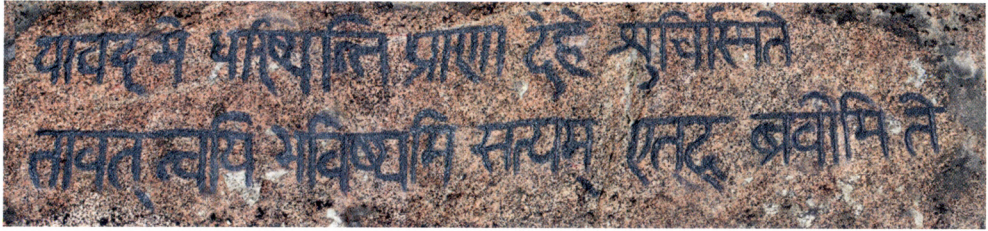 यावद् मे धरिष्यन्ति प्राणा देहे शुचिस्मिते
तावत् त्वयि भविष्यमि सत्यम् एतद् ब्रवीमि ते